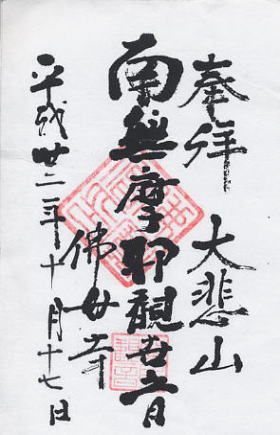 奉拝 大悲山
南無摩耶観世音
佛母寺
平成廿二年十月十七日